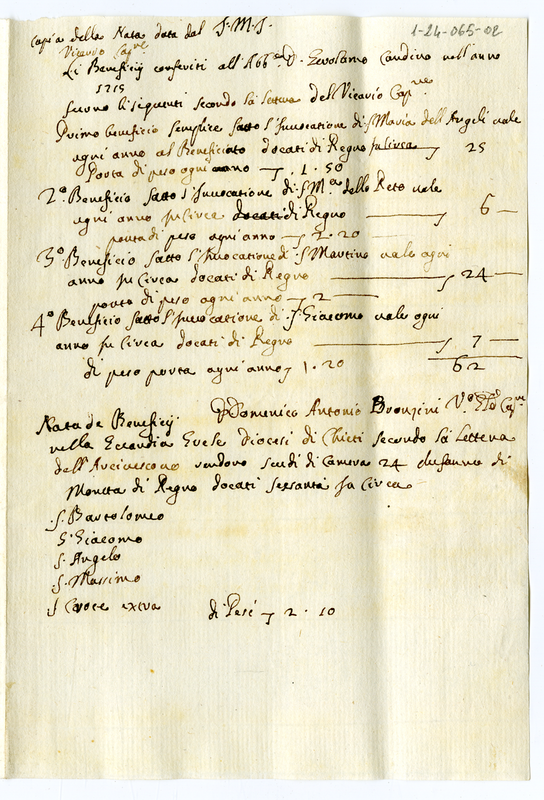 1-24-065-02
Copia della Nota data dal S. M. S.
Vicario Cap.ne
Li Beneficij conferiti all'Abb.e D. Gerolamo Candino nell'anno
1715
sono li seguenti secondo la lettera del Vicario Cap.ne
Primo beneficio semplice sotto l'Invocatione di S. Maria dell'Angeli vale
ogni anno al Beneficiato docati di Regno in circa — 25
Porta di peso ogni anno — 1.50
2.o Beneficio sotto l'Invocatione di S. M.a dello Reto vale
ogni anno in circa docati di Regno — 6 —
porta di peso ogni anno — 1.20
3.o Beneficio sotto l'Invocatione di S. Martino vale ogni
anno in circa docati di Regno — 24 —
porta di peso ogni anno — 2 —
4.o Beneficio sotto l'Invocatione di S. Giacomo vale ogni
anno in circa docati di Regno — 7 —
di peso porta ogni anno 1.20 62
Domenico Antonio Bronzini V.o Cap.ne
Nota de Beneficij
nella Diocesi di Chieti secondo la Lettera
dell'Arcivescovo rendono scudi di Camera 24 che fanno di
Moneta di Regno docati sessanta in Circa
S. Bartolomeo
S. Giacomo
S. Angelo
S. Massimo
S Croce extra di Pesi — 2.10